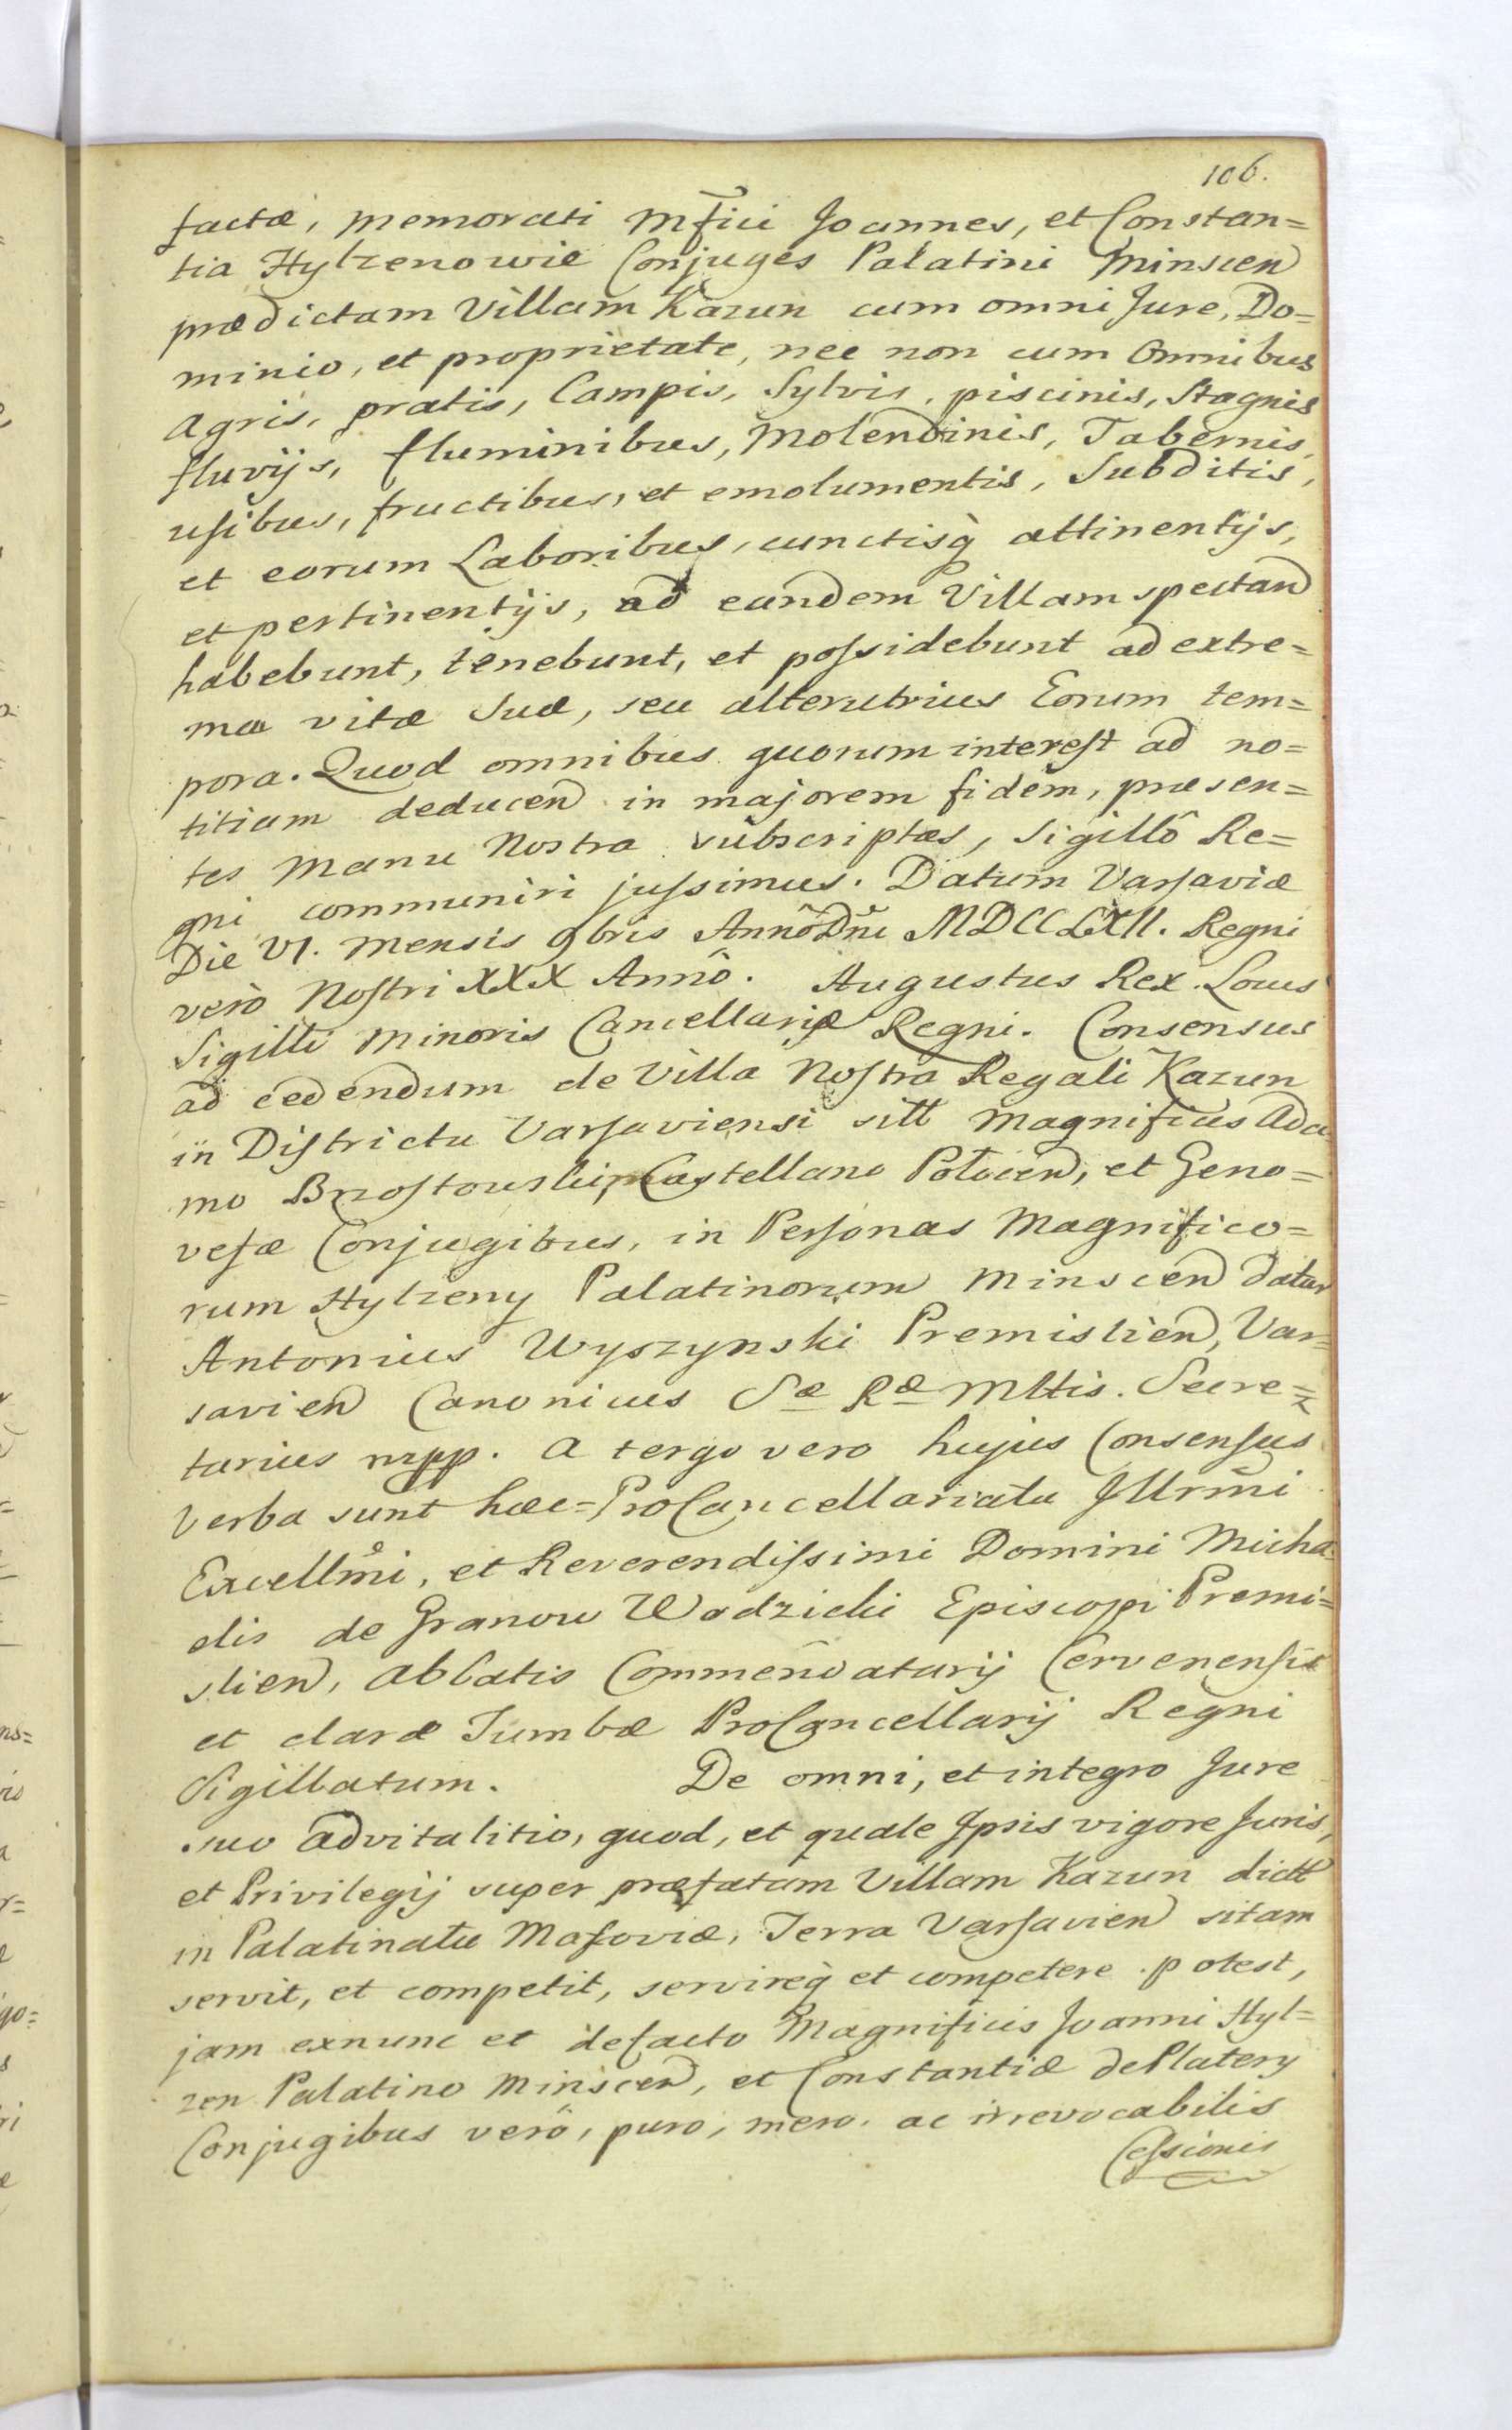 106.
factæ, memorati Mfici Joannes, et Constan=
tia Hylzenowie Conjuges Palatini Minscen
prædictam Villam Kazun cum omni Jure, Do=
minio, et proprietate, nec non cum Omnibus
Agris, pratis, Campis, Sylvis, piscinis, Stagnis
fluvijs, fluminibus, Molendinis, Tabernis,
usibus, fructibus, et emolumentis, Subditis,
et eorum Laboribus, cunctisq̀ attinentijs,
et pertinentijs, ad eandem Villam spectand
habebunt, tenebunt, et possidebunt ad extre=
ma vitæ Suæ, seu alterutrius Eorum tem=
pora. Quod omnibus quorum interest ad no=
titiam deducend in majorem fidem, præsen=
tes Manu Nostra subscriptas, Sigillô Re=
gni communiri jussimus. Datum Varsaviæ
Die VI. Mensis 9bris Annô Dñi MDCCLXII. Regni
verò Nostri XXX Annô. Augustus Rex. Locus
Sigilli Minoris Cancellariæ Regni. Consensus
ad cedendum de Villa Nostra Regali Kazun
in Districtu Varsaviensi sitt Magnificis Ada
mo Brzostowski, Castellano Polocen, et Geno=
vefæ Conjugibus, in Personas Magnifico=
rum Hylzeny Palatinorum Minscen datur
Antonius Wyszynski Premislien, Var=
savien Canonicus Sæ Ræ Mttis. Secre=
tarius mpp. A tergo vero hujus Consensus
Verba sunt hæc=ProCancellariatu Jllrmi
Excellmi, et Reverendissimi Domini Micha
elis de Granow Wodzicki Episcopi Premi=
slien, Abbatis Commendatarij Cervenensis
et claræ Tumbæ ProCancellarij Regni
Sigillatum. De omni, et integro Jure
suo advitalitio, quod, et quale Jpsis vigore Juris,
et Privilegij super præfatam Villam Kazun dictt
in Palatinatu Masoviæ, Terra Varsavien sitam
servit, et competit, servireq̀ et competere potest,
jam exnunc et defacto Magnificis Joanni Hyl=
zen Palatino Minscen, et Constantiæ de Platery
Conjugibus verô, puro, mero ac irrevocabilis
Cessionis